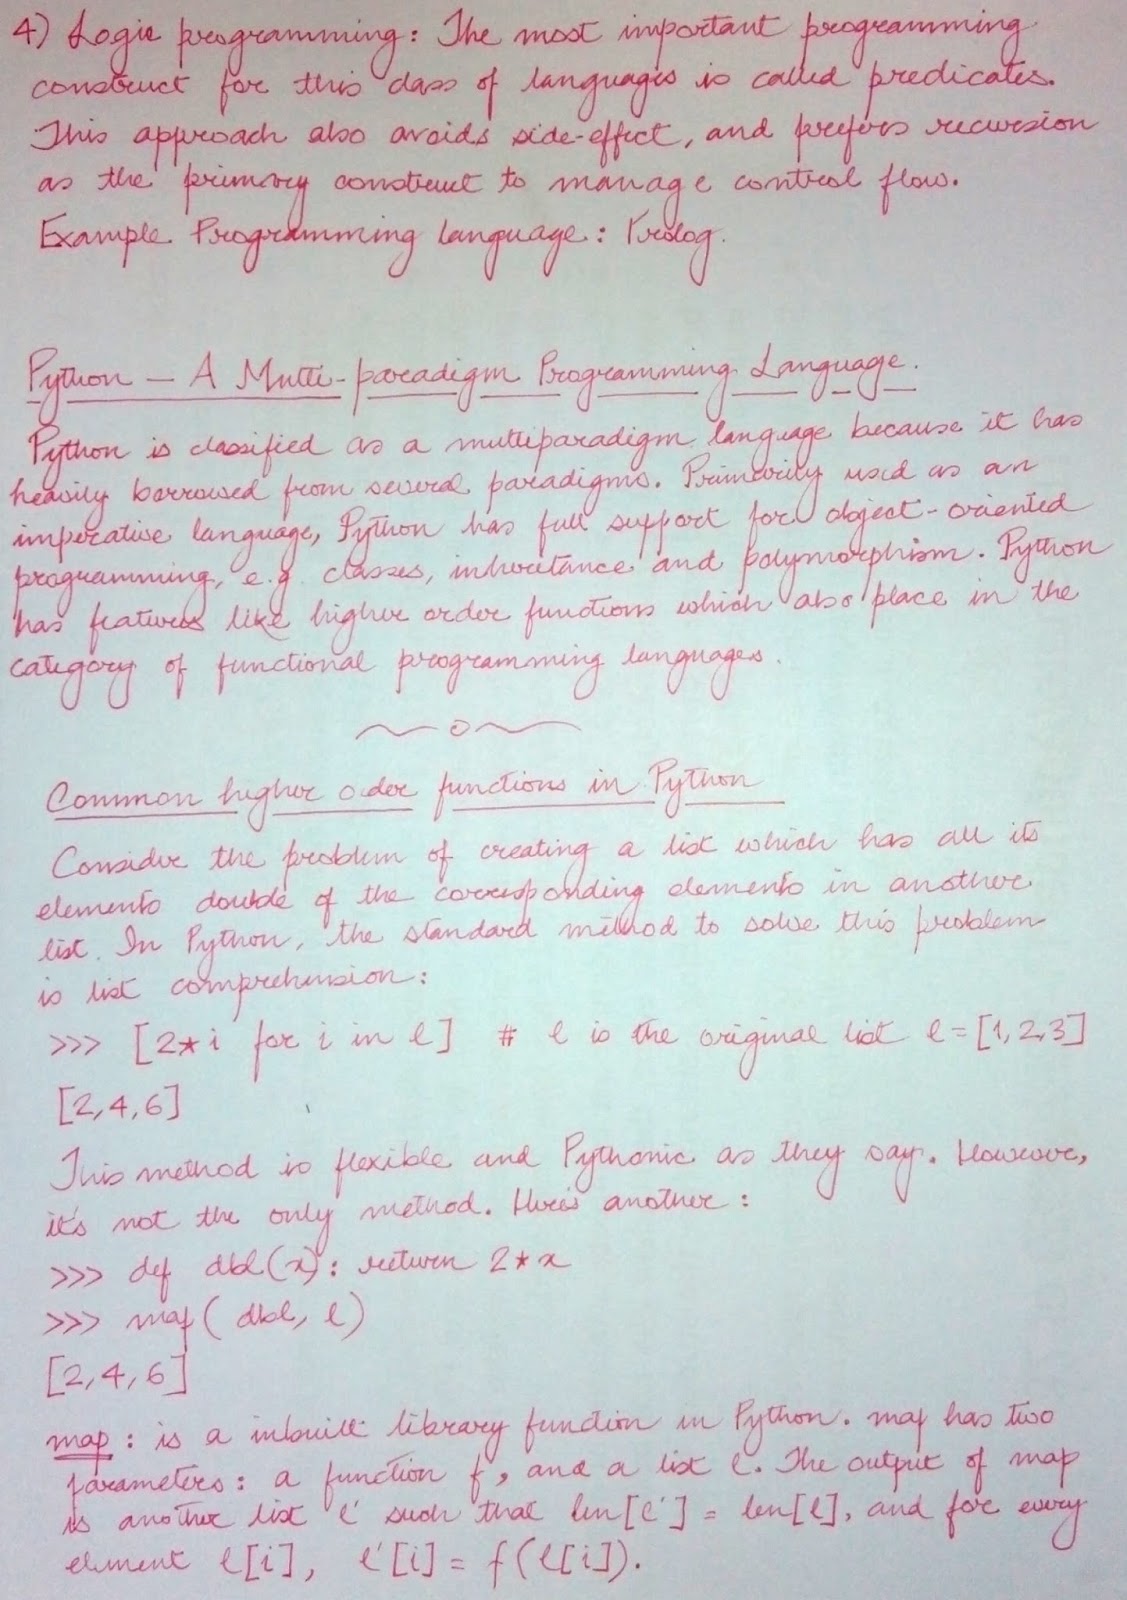 4) Logic programming: The most important programming
construct for this class of languages is called predicates.
This approach also avoids side-effect, and prefers recursion
as the primary construct to manage control flow.
Example Programming language: Prolog.
Python — A Multi-paradigm Programming Language.
Python is classified as a multiparadigm language because it has
heavily borrowed from several paradigms. Primarily used as an
imperative language, Python has full support for object-oriented
programming, e.g. classes, inheritance and polymorphism. Python
has features like higher order functions which also place in the
category of functional programming languages.
Common higher order functions in Python
Consider the problem of creating a list which has all its
elements double of the corresponding elements in another
list. In Python, the standard method to solve this problem
is list comprehension:
>>> [2*i for i in l] # l is the original list l=[1,2,3]
[2,4,6]
This method is flexible and Pythonic as they say. However,
it's not the only method. Here's another:
>>> def dbl(x): return 2*x
>>> map(dbl, l)
[2,4,6]
map: is a inbuilt library function in Python. map has two
parameters: a function f, and a list l. The output of map
is another list l' such that len[l'] = len[l], and for every
element l[i], l'[i] = f(l[i]).